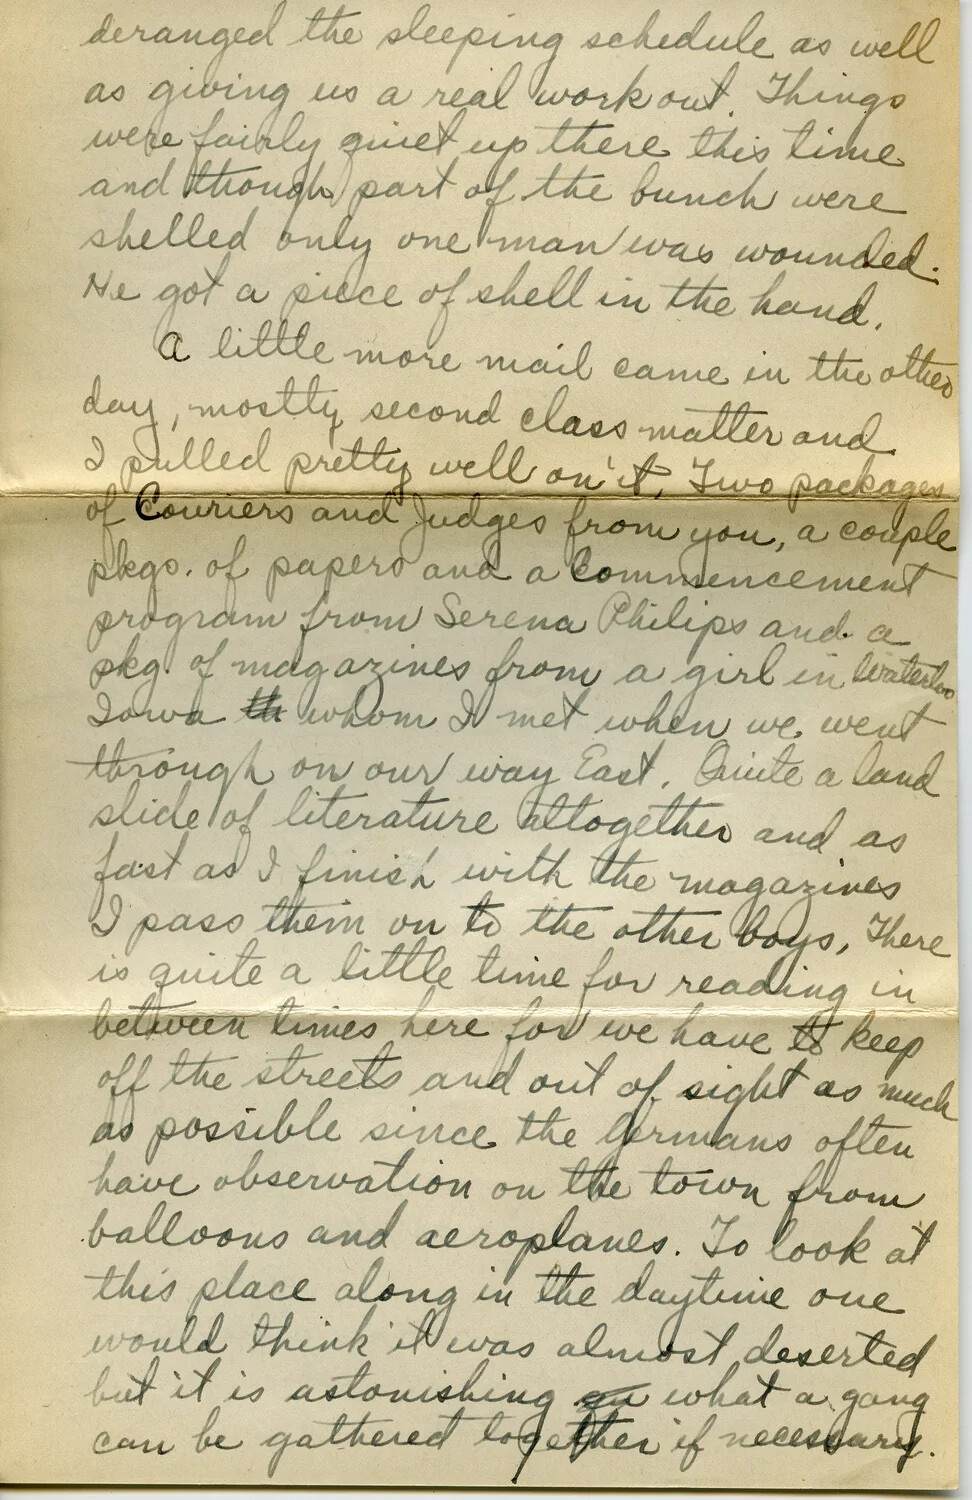 deranged the sleeping schedule as well
as giving us a real work out. Things
were fairly quiet up there this time
and though part of the bunch were
shelled only one man was wounded.
He got a piece of shell in the hand.
A little more mail came in the other
day, mostly second class matter and
I pulled pretty well on it. Two packages
of Couriers and Judges from you, a couple
pkgs. of papers and a Commencement
program from Serena Philips and a
pkg. of magazines from a girl in Waterloo
Iowa th whom I met when we went
through on our way East. Quite a land
slide of literature altogether and as
fast as I finish with the magazines
I pass them on to the other boys. There
is quite a little time for reading in
between times here for we have to keep
off the streets and out of sight as much
as possible since the Germans often
have observation on the town from
balloons and aeroplanes. To look at
this place along in the daytime one
would think it was almost deserted
but it is astonishing what a gang
can be gathered together if necessary.